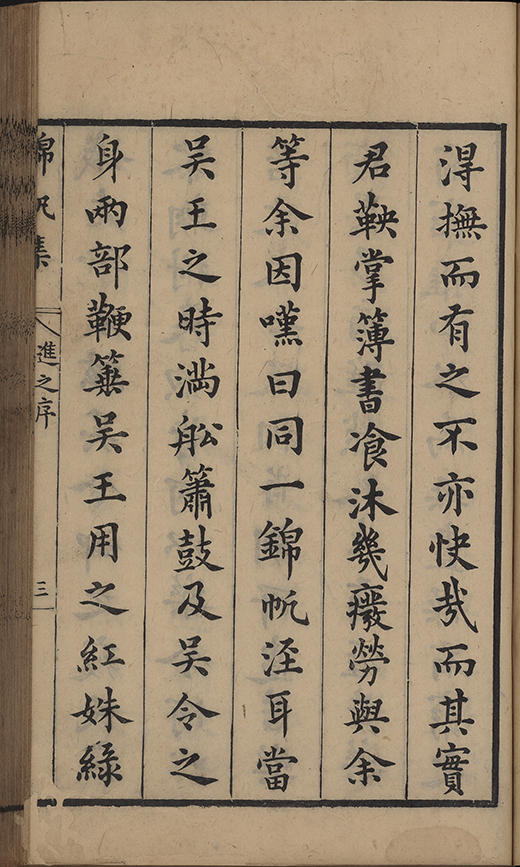 淂撫而有之不亦快哉而其實
君鞅掌簿書飡沐幾癈勞與余
等余因嘆曰同一錦帆涇耳當
吳王之時滿舩簫鼓及吳令之
身兩部鞭箠吳王用之紅姝綠
錦帆集
進之序
三